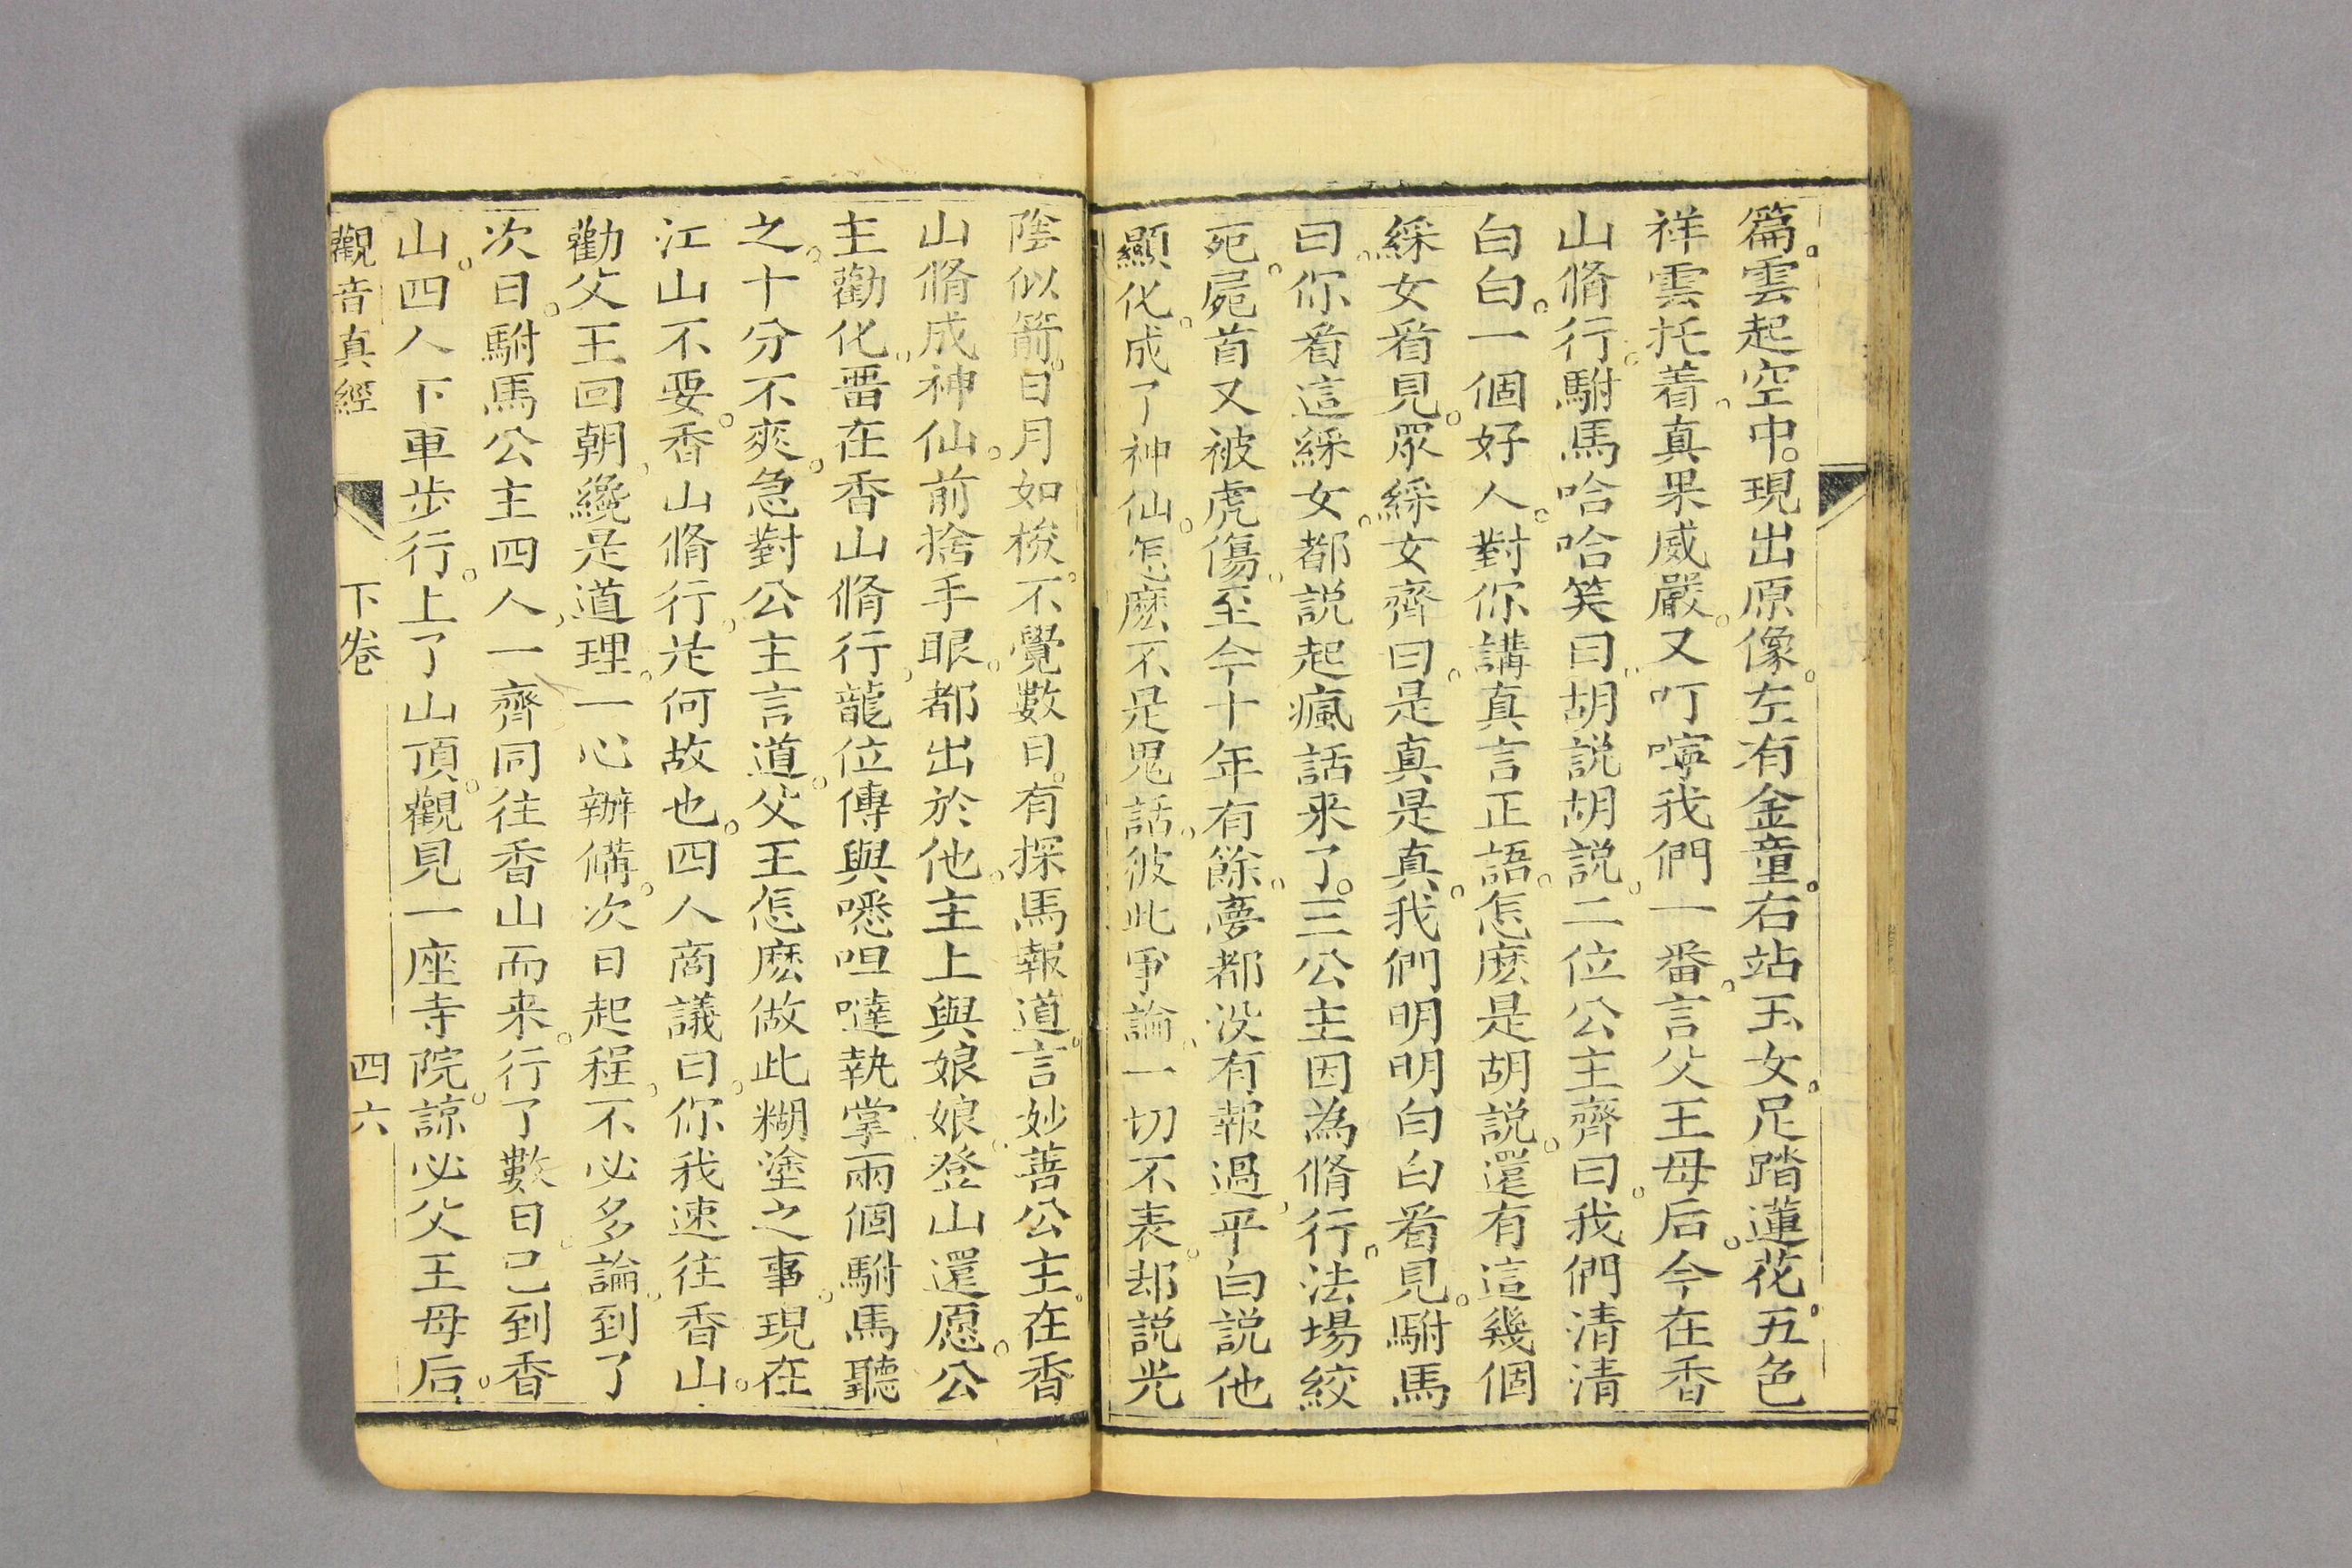 篇。雲起空中。現出原像。左有金童。右站玉女。足踏蓮花。五色
祥雲托着。真果威嚴。又叮嚀我們一番。言父王母后。今在香
山脩行。駙馬哈哈笑曰。胡説胡説。二位公主齊曰。我們清清
白白。一個好人。對你講真言正語。怎麽是胡説。還有這幾個
綵女看見。眾綵女齊曰。是真是真。我們明明白白看見。駙馬
曰。你看這綵女。都説起瘋話来了。三公主因為脩行。法場絞
死。屍首又被虎傷。至今十年有餘。夢都没有報過。平白説他
顯化。成了神仙。怎麽不是鬼話。彼此爭論。一切不表。却説光
陰似箭。日月如梭。不覺數日。有探馬報道。言妙善公主。在香
山脩成神仙。前捨手眼。都出於他。主上與娘娘。登山還愿。公
主勸化。畱在香山脩行。龍位傳與𠺕呾噠執掌。兩個駙馬聽
之。十分不爽。急對公主言道。父王怎麽做此糊塗之事。現在
江山不要。香山脩行。是何故也。四人商議曰。你我速往香山。
勸父王回朝。纔是道理。一心辦備。次日起程。不必多論。到了
次日。駙馬公主四人。一齊同往香山而来。行了數日。已到香
山。四人下車步行。上了山頂。觀見一座寺院。諒必父王母后。
觀音真經 下卷 四六